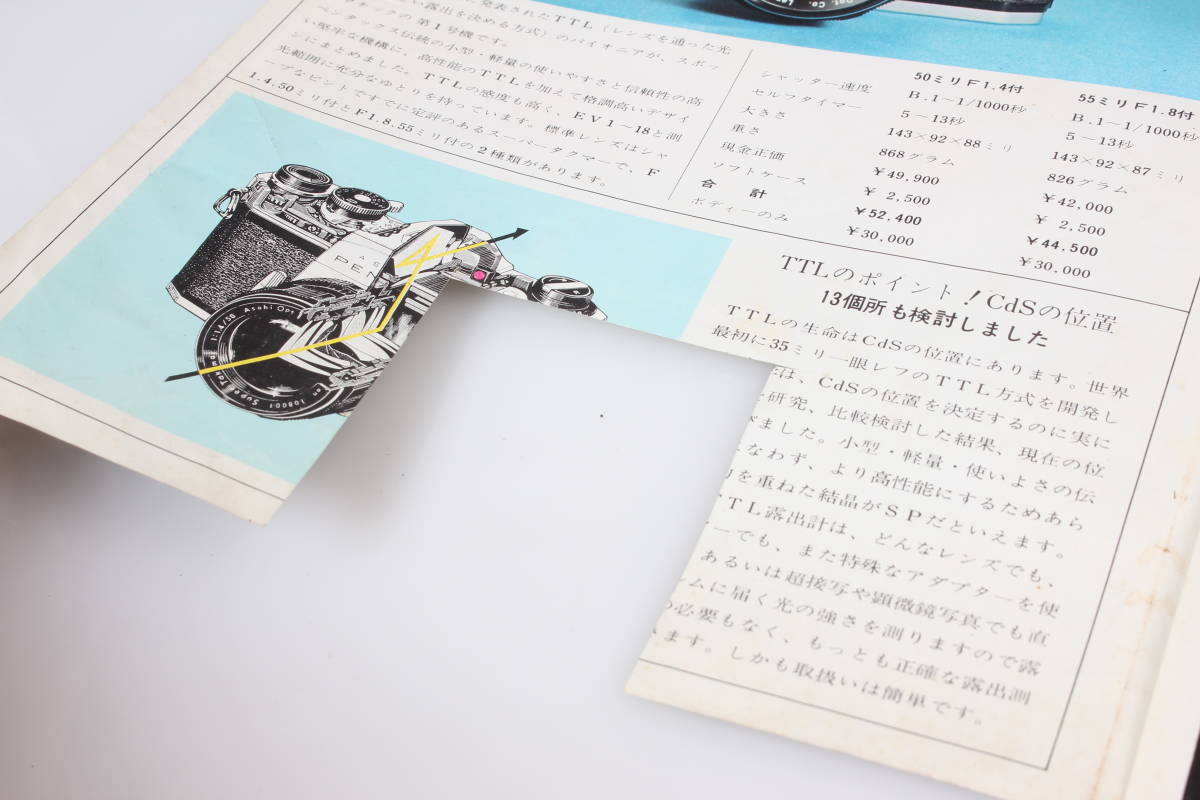 発表されたTTL（レンズを通った光
い露出を決める方式）のパイオニアが、スポッ
マチックの第1号機です。
ペンタックス伝統の小型・軽量の使いやすさと信頼性の高
い堅牢な機構に、高性能のTTLを加えて格調高いデザイ
ンにまとめました。TTLの感度も高く、EV1～18と測
光範囲に充分なゆとりを持っています。標準レンズはシャ
ープなピントですでに定評のあるスーパータクマーで、F
1.4.50ミリ付とF1.8.55ミリ付の2種類があります。
50ミリF1.4付 55ミリF1.8付
シャッター速度 B.1～1/1000秒 B.1～1/1000秒
セルフタイマー 5－13秒 5－13秒
大きさ 143×92×88ミリ 143×92×87ミリ
重さ 868グラム 826グラム
現金正価 ￥49.900 ￥42,000
ソフトケース ￥2,500 ￥2,500
合計 ￥52.400 ￥44.500
ボディーのみ ￥30.000 ￥30.000
Asahi Opt
1:1.4/50
Super
TTLのポイント！CdSの位置
13個所も検討しました
TTLの生命はCdSの位置にあります。世界
最初に35ミリ一眼レフのTTL方式を開発し
は、CdSの位置を決定するのに実に
研究、比較検討した結果、現在の位
ました。小型・軽量・使いよさの伝
なわず、より高性能にするためあら
を重ねた結晶がSPだといえます。
TTL露出計は、どんなレンズでも、
ーでも、また特殊なアダプターを使
あるいは超接写や顕微鏡写真でも直
ムに届く光の強さを測りますので露
必要もなく、もっとも正確な露出測
ます。しかも取扱いは簡単です。